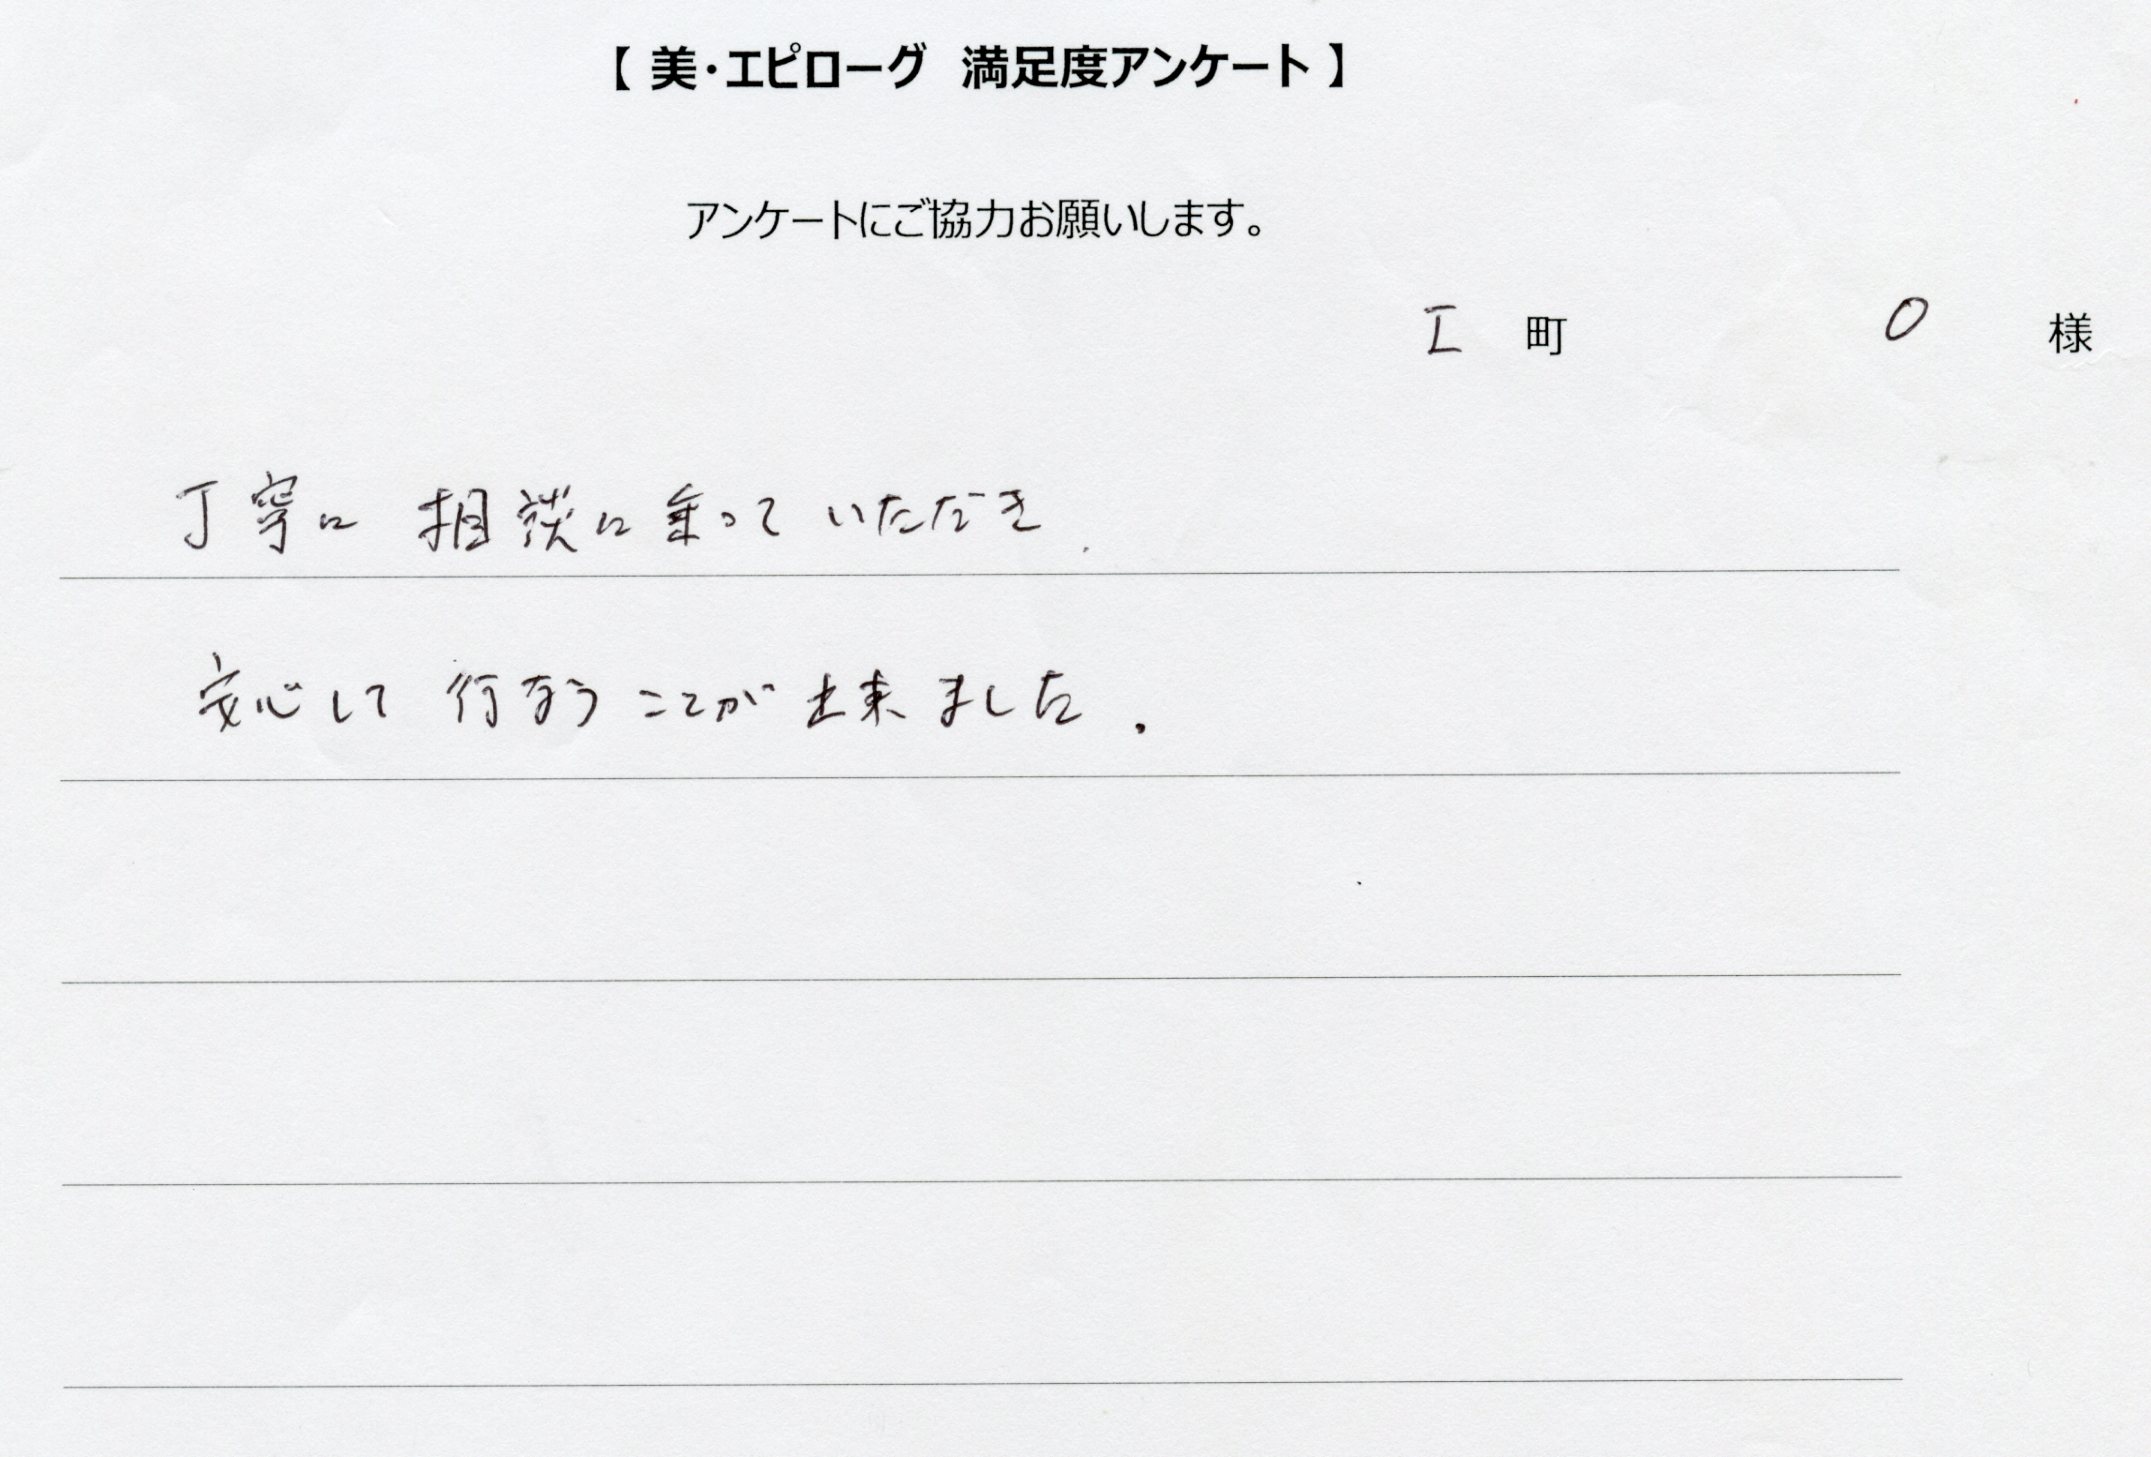 【 美・エピローグ 満足度アンケート 】
アンケートにご協力お願いします。
I 町 O 様
丁寧に 相談に乗って いただき
安心して 行なう ことが 出来ました.